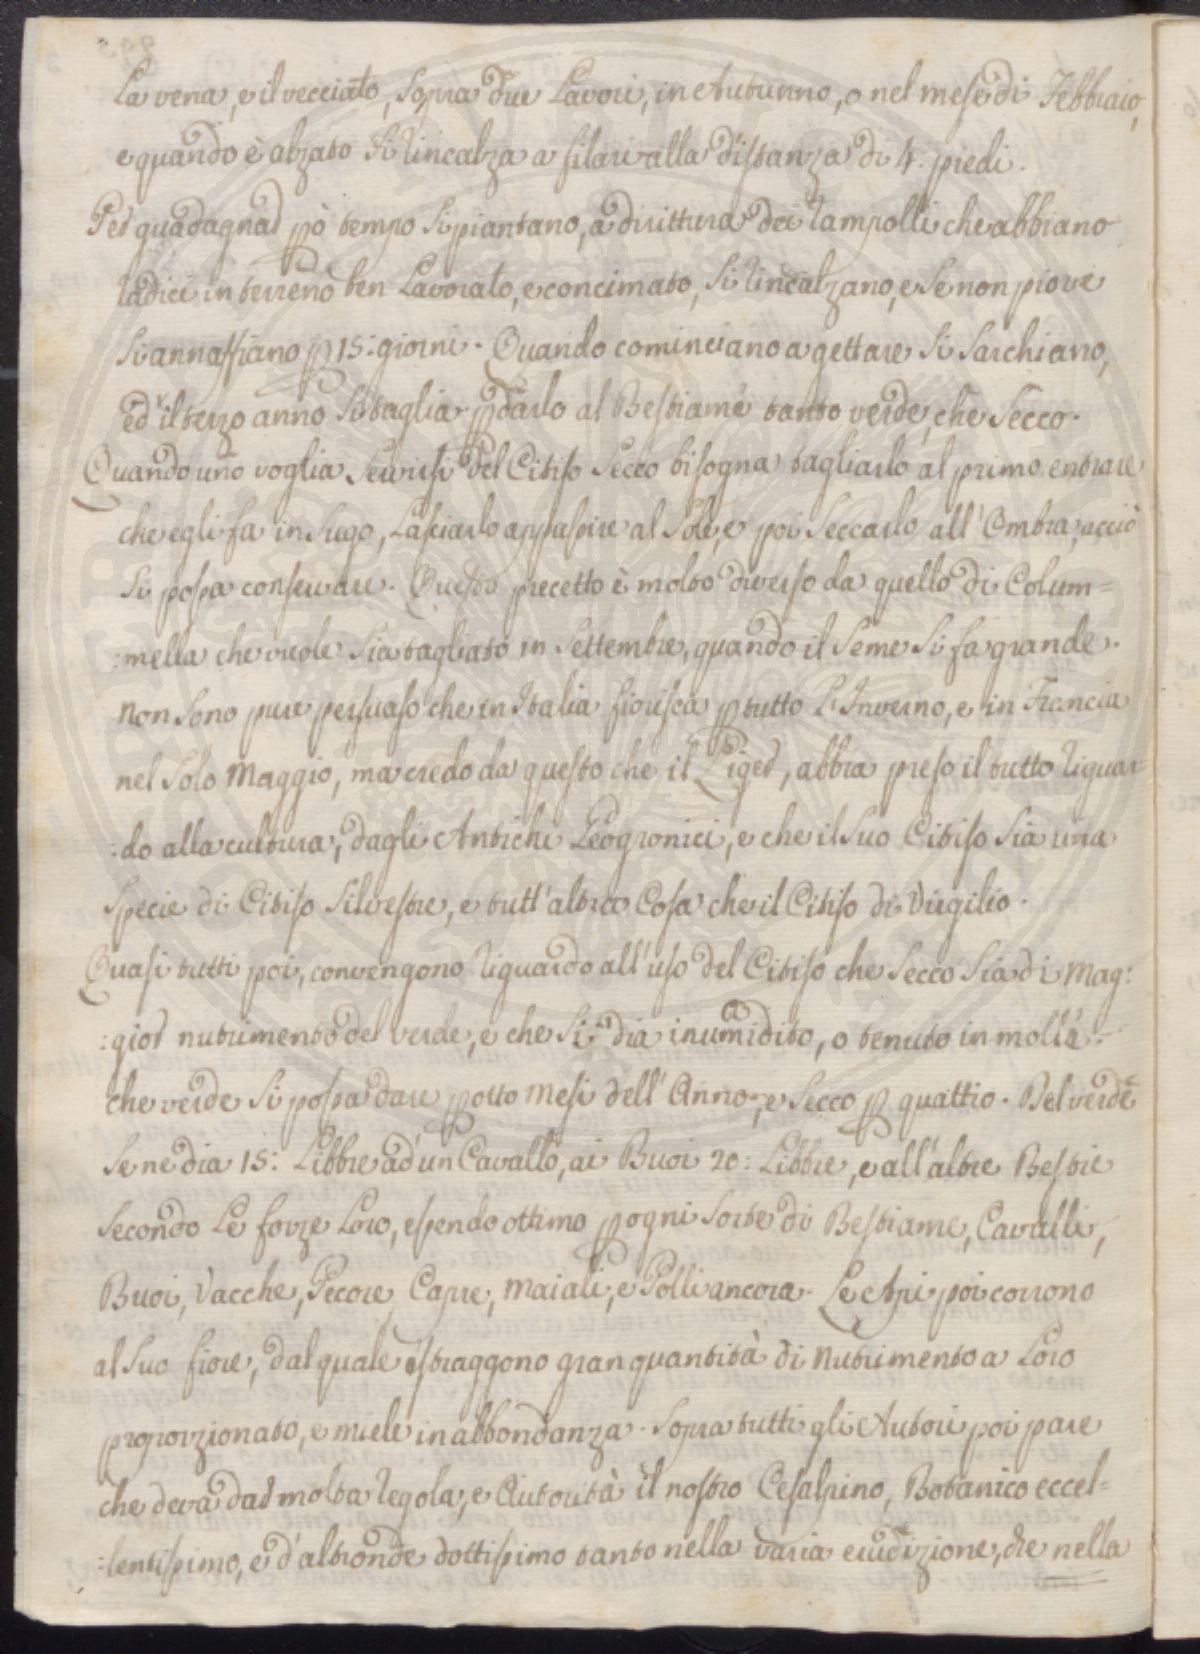 La vena, e il vecciato, sopra due Lavori, in Autunno, o nel mese di Febbraio,
e quando è alzato si rincalza a filari alla distanza di 4. piedi.
Per guadagnar però tempo si piantano, a dirittura dei rampolli che abbiano
radici in terreno ben Lavorato, e concimato, si rincalzano, e se non piove
si annaffiano p 15: giorni. Quando cominciano a gettare si sarchiano,
ed il terzo anno si taglia p darlo al Bestiame tanto verde, che secco.
Quando uno voglia servirsi del Citiso secco bisogna tagliarlo al primo entrare
che egli fa in sugo, Lasciarlo appassire al Sole, e poi seccarlo all' Ombra, acciò
si possa conservare. Questo precetto è molto diverso da quello di Colum=
:mella che vuole sia tagliato in Settembre, quando il seme si fa grande.
Non sono pure persuaso che in Italia fiorisca p tutto L'Inverno, e in Francia
nel solo Maggio, ma credo da questo che il Liger, abbia preso il tutto riguar=
:do alla cultura, dagli Antichi Geogronici, e che il suo Citiso sia una
specie di Citiso silvestre, e tutt' altra Cosa che il Citiso di Virgilio.
Quasi tutti poi, convengono riguardo all' uso del Citiso che secco sia di Mag:
:gior nutrimento del verde, e che si dia inumidito, o tenuto in molla.
che verde si possa dare p otto Mesi dell' Anno, e secco p quattro. Del verde
se ne dia 15: Libbre ad un Cavallo, ai Buoi 20: Libbre, e all' altre Bestie
secondo Le forze Loro, essendo ottimo p ogni sorte di Bestiame, Cavalli,
Buoi, Vacche, Pecore, Capre, Maiali, e Polli ancora. Le Api poi corrono
al suo fiore, dal quale estraggono gran quantità di Nutrimento a Loro
proporzionato, e miele in abbondanza. Sopra tutti gli Autori poi pare
che deva dar molta regola, e Autorità il nostro Cesalpino, Botanico eccel=
:lentissimo, e d'altronde dottissimo tanto nella varia erudizione, che nella